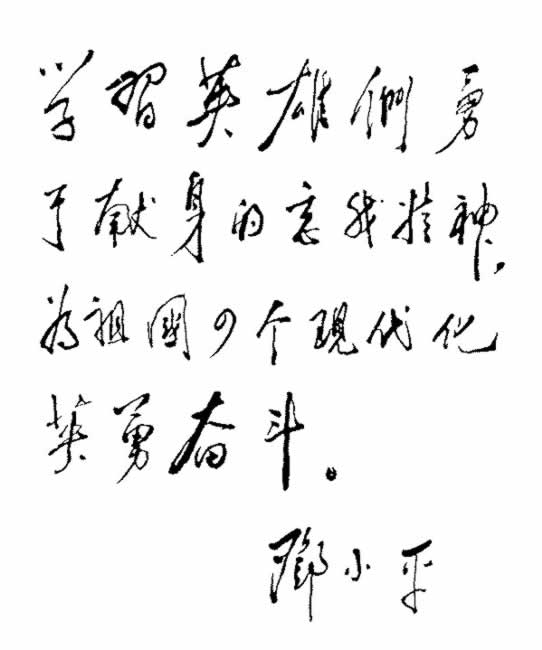 学習英雄們勇
于献身的忘我精神，
为祖國四个現代化
英勇奋斗。
鄧小平